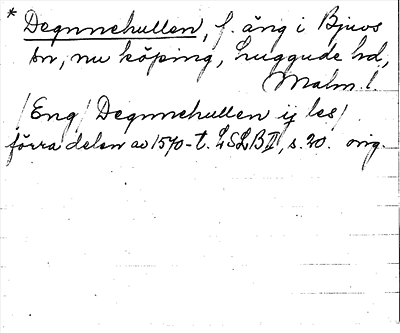 * Degnnehullen, f. äng i Bjuvs
sn, nu köping, Luggude hd,
Malm. l.
/Eng/ Degnnehullen ij les/
förra delen av 1570-t. LSLB II, s. 20. orig.